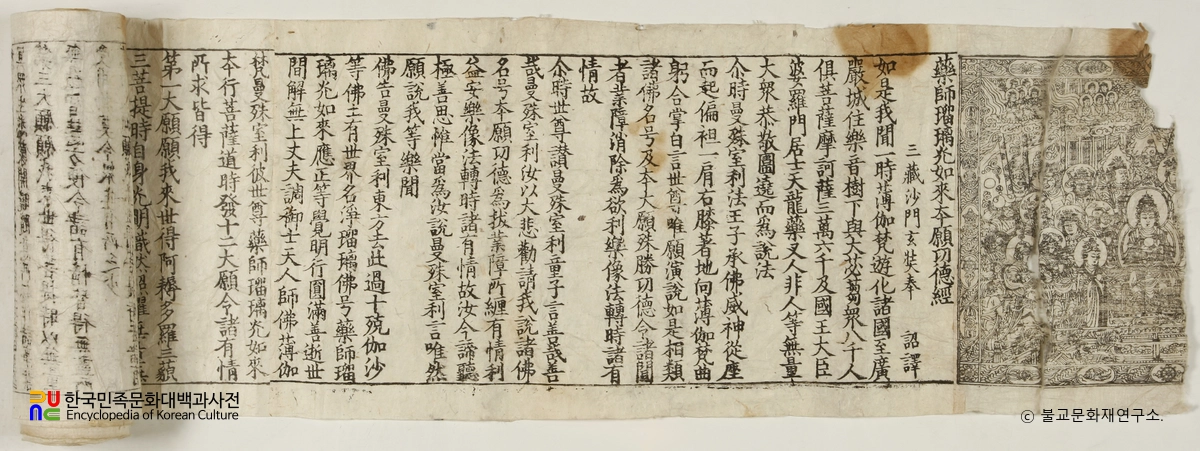 藥師瑠璃光如來本願功德經
三藏沙門玄奘奉 詔譯
如是我聞一時薄伽梵遊化諸國至廣
嚴城住樂音樹下與大苾蒭衆八千人
俱菩薩摩訶薩三萬六千及國王大臣
婆羅門居士天龍藥叉人非人等無量
大衆恭敬圍遶而爲說法
尒時曼殊室利法王子承佛威神從座
而起偏袒一肩右膝著地向薄伽梵曲
躬合掌白言世尊唯願演說如是相類
諸佛名号及本大願殊勝功德令諸聞
者業障消除爲欲利樂像法轉時諸有
情故
尒時世尊讃曼殊室利童子言善哉善
哉曼殊室利汝以大悲勸請我說諸佛
名号本願功德爲拔業障所纏有情利
益安樂像法轉時諸有情故汝今諦聽
極善思惟當爲汝說曼殊室利言唯然
願說我等樂聞
佛告曼殊室利東方去此過十殑伽沙
等佛土有世界名淨瑠璃佛号藥師瑠
璃光如來應正等覺明行圓滿善逝世
間解無上丈夫調御士天人師佛薄伽
梵曼殊室利彼世尊藥師瑠璃光如來
本行菩薩道時發十二大願令諸有情
所求皆得
第一大願願我來世得阿耨多羅三藐
三菩提時自身光明熾然照耀無
PUNC
한국민족문화대백과사전
Encyclopedia of Korean Culture
ⓒ 불교문화재연구소.